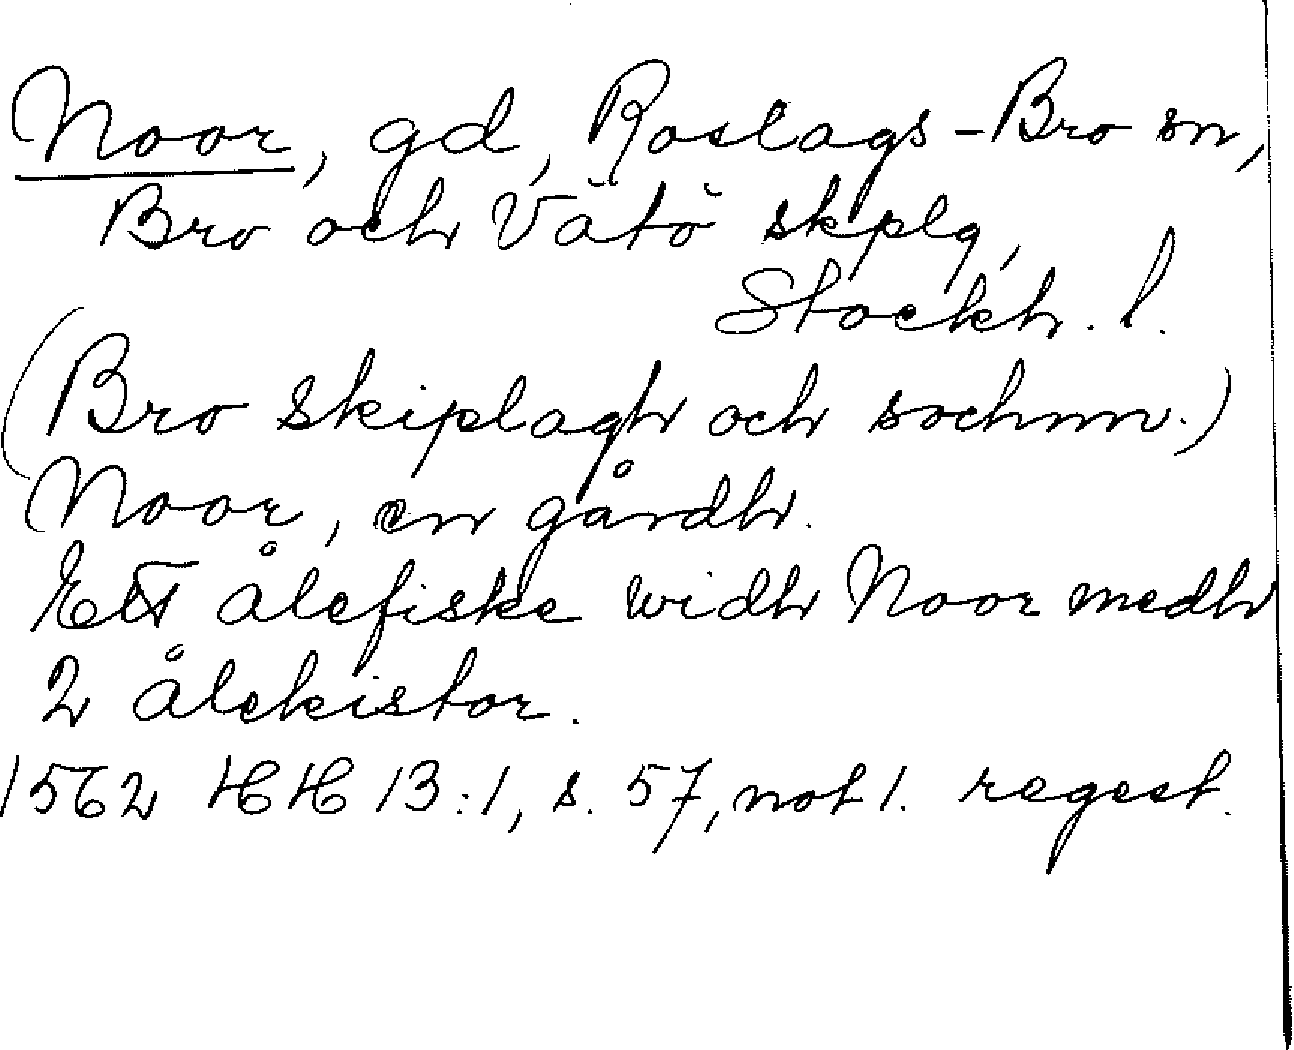 Noor, gd, Roslags-Bro sn,
Bro och Vätö skplg,
Stockh. l.
(Bro skiplagh och sochnn.)
Noor, en gårdh.
Ett ålefiske widh Noor medh
2 ålekistor.
1562 HH 13:1, s. 57, not 1. regest.